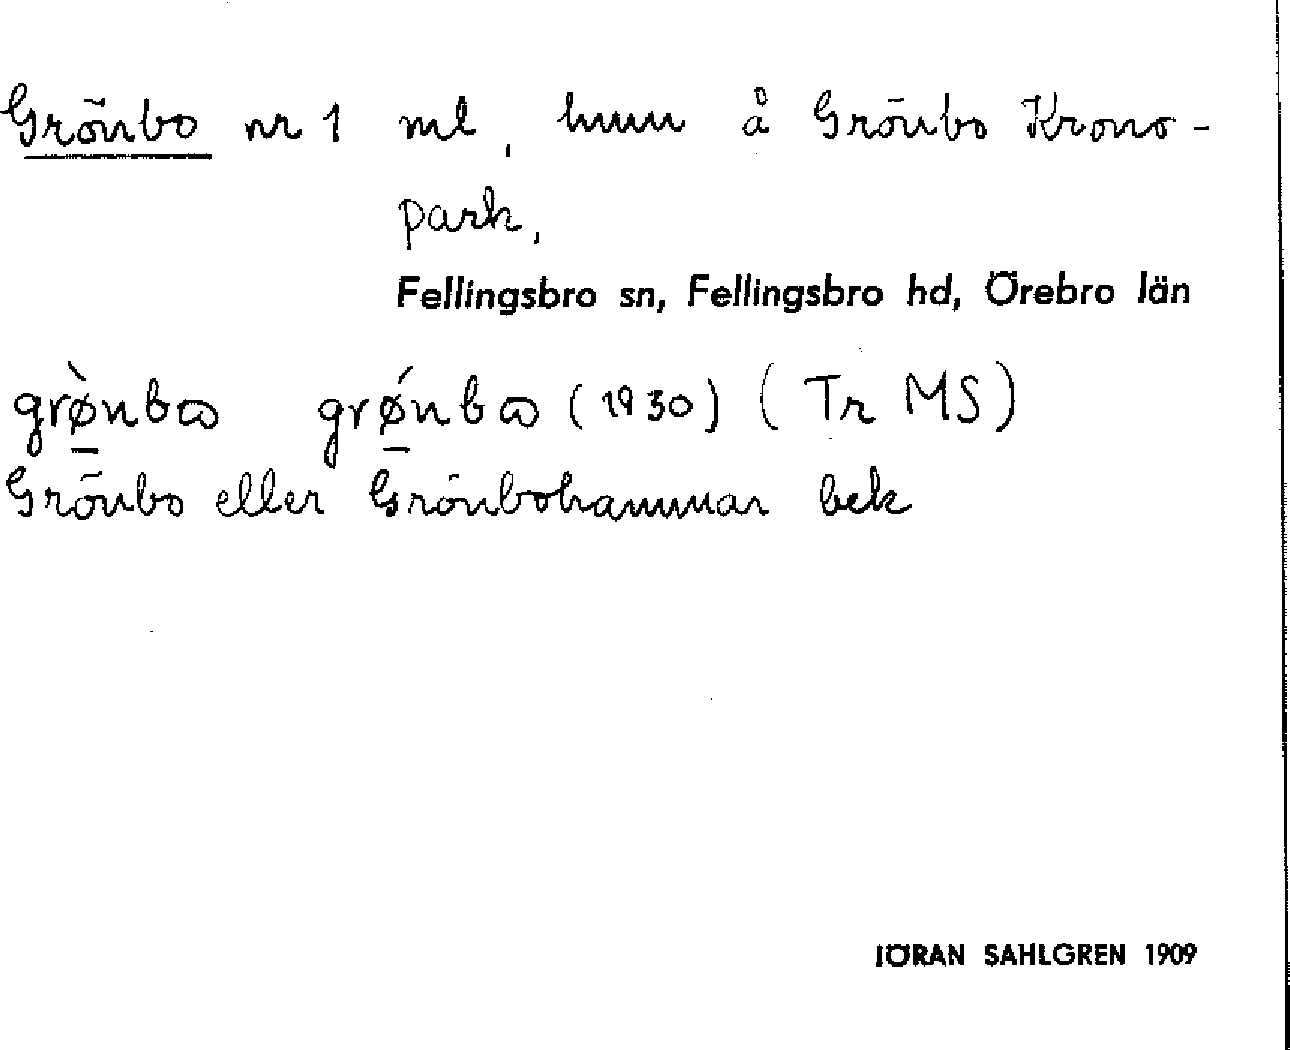 Grönbo nr 1 ml, hmn å Grönbo Krono-
park,
Fellingsbro sn, Fellingsbro hd, Örebro län
grø̀nbω grǿnbω (1930) (Tr MS)
Grönbo eller Grönbohammar bek
JÖRAN SAHLGREN 1909